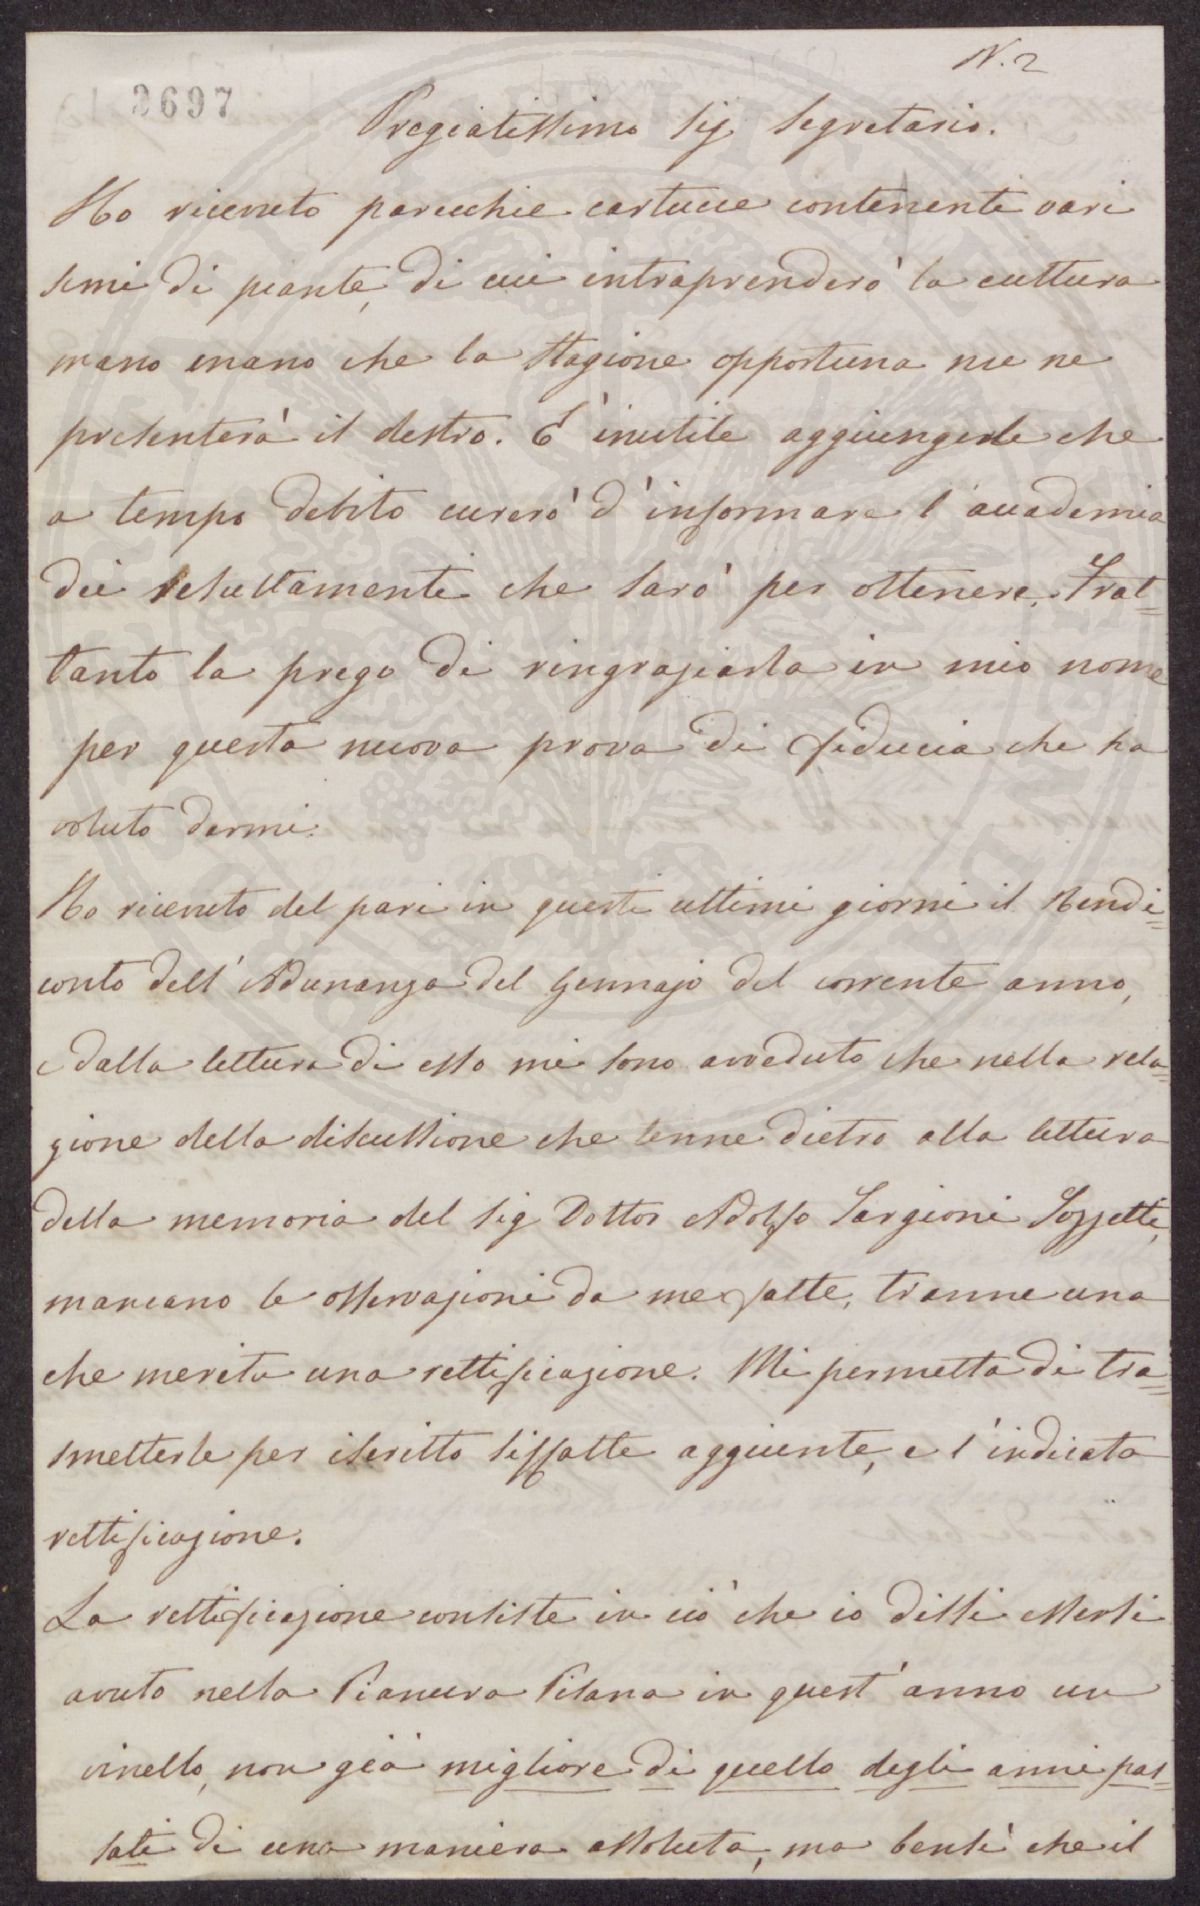 N. 2
2697
Pregiatissimo Sig. Segretario.
Ho ricevuto parecchie cartucce contenenti vari
semi di piante, di cui intraprenderò la cultura
mano mano che la stagione opportuna me ne
presenterà il destro. È inutile aggiungerle che
a tempo debito curerò d'informare l'accademia
dei resultamenti che sarò per ottenere. Frat=
tanto la prego di ringraziarla in mio nome
per questa nuova prova di fiducia che ha
voluto darmi.
Ho ricevuto del pari in questi ultimi giorni il Rendi=
conto dell'Adunanza del Gennajo del corrente anno,
e dalla lettura di esso mi sono avveduto che nella rela=
zione della discussione che tenne dietro alla lettura
della memoria del Sig Dottor Adolfo Targioni Tozzetti,
mancano le osservazioni da me fatte, tranne una
che merita una rettificazione. Mi permetta di tra=
smetterle per iscritto siffatte aggiunte, e l'indicata
rettificazione.
La rettificazione consiste in ciò che io dissi essersi
avuto nella Pianura Pisana in quest'anno un
vinello, non già migliore di quello degli anni pas=
sati di una maniera assoluta, ma bensì che il